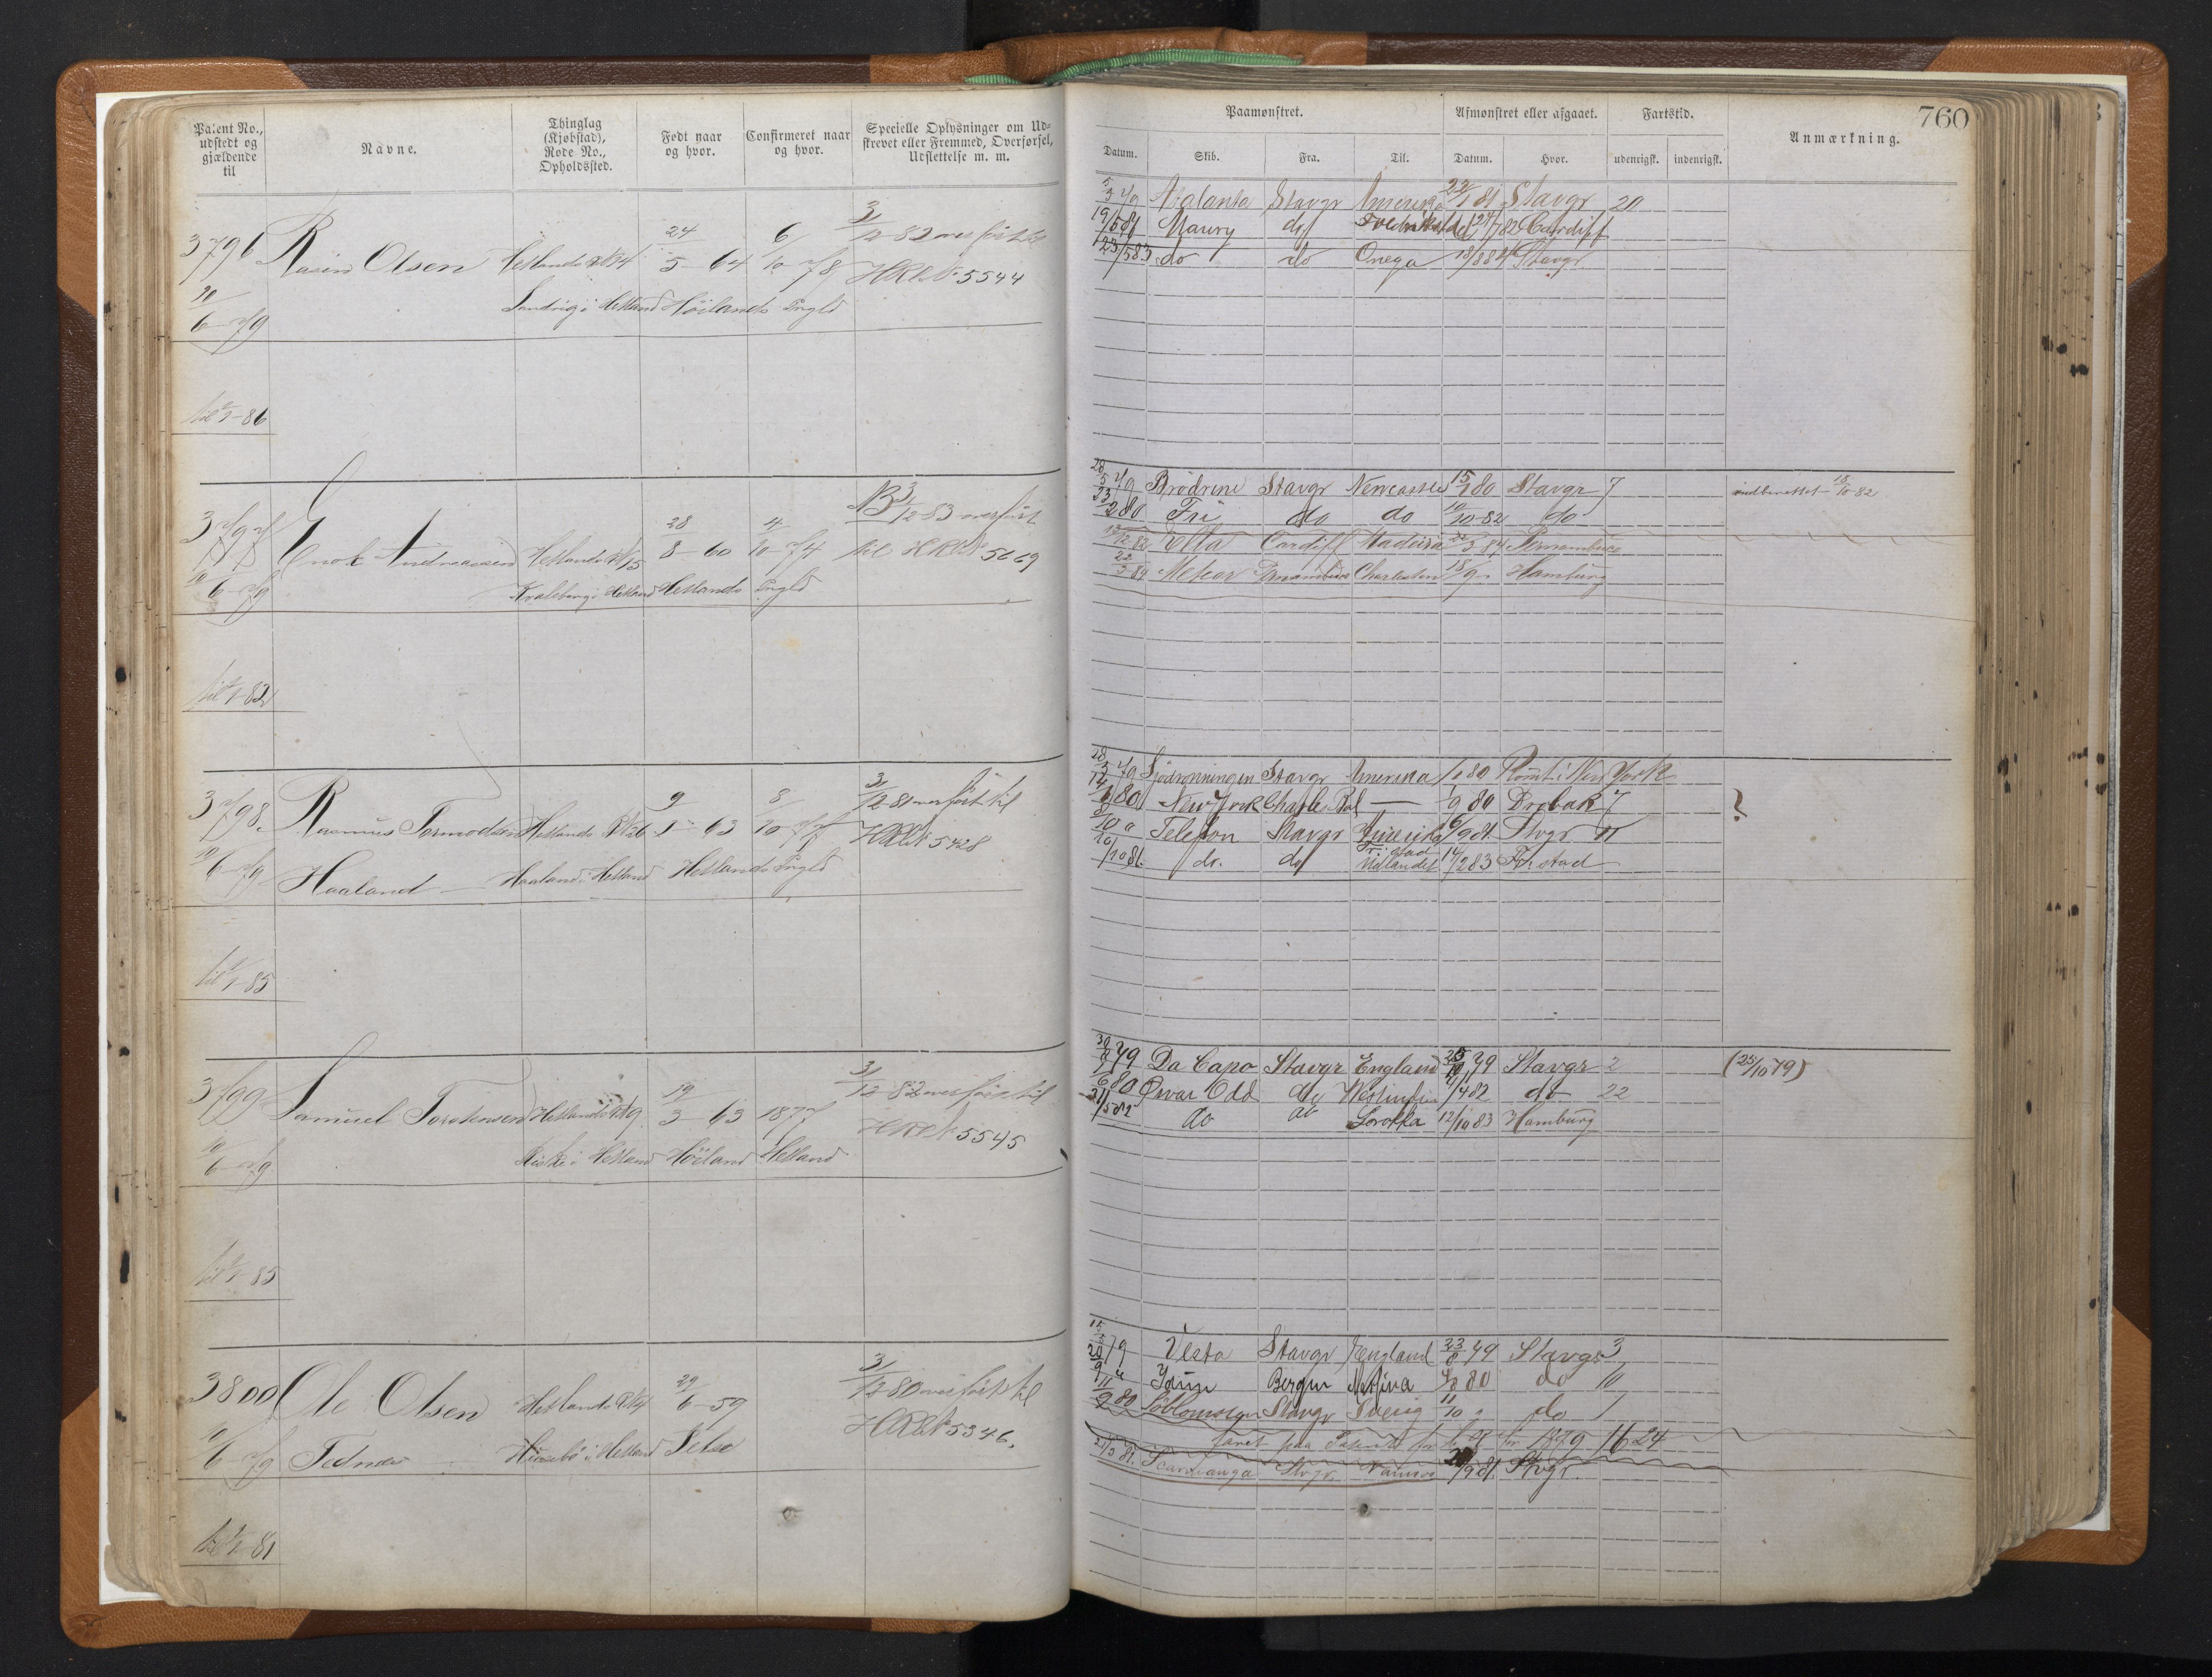 Patent No., udstedt og gjældende til
Navne.
Thinglag (Kjøbstad), Rode No., Opholdssted.
Født naar og hvor.
Confirmeret naar og hvor.
Specielle Oplysninger om Udskrevet eller Fremmed, Overførsel, Udslettelse m. m.
3796 Rasin Olsen Hetlands 24/5 64 6/10 78 31/12 82 overført til
HRN 5544
10/6 79 Sandvig i Hetland Höilands Prgld
til 1/1-86
3797 Enok Andreassen Hetlands 28/8-60 4/10-74 31/12 83 overført
til HRN 5669
10/6-79 Kvaleberg i Hetland Hetlands Prgld
til 1/1-82
3798. Rasmus Tormodsen Hetlands 9/1-63 8/10 77 31/12 81 overført til
HRN 5428
10/6-79 Haaland Haaland i Hetland Hetlands Prgld
til 1/1-85
3799 Samuel Torstensen Hetlands 19/3-63 1877 31/12 82 overført til
HRN 5545
10/6-79 i Hetland Höiland Hetland
til 1/1 85
3800 Ole Olsen Hetlands 29/6-59 31/12 80 overført til
HRN 5346.
10/6-79 Tednes i Hetland
til 1/1-81
760
Paamønstret.
Afmønstret eller afgaaet.
Fartstid.
Anmærkning.
Datum.
Skib.
Fra.
Til.
Datum.
Hvor.
udenrigsk.
indenrigsk.
5/3 79 Atalanta Stavgr Amerika 81 Stavgr 20
19/5 81 Maury do 82 Cardiff
23/5 83 do do Onega 18/8 84 Stavgr
28/5 79 Brødrene Stavgr Newcastle 15/1 80 Stavgr 7 indberettet 18/10 82
23/2 80 Fri do do 10/10-82 do
12/12 82 Etta Cardiff Madeira 3 84 Pernambuco
84 Meteor Pernambuco Charleston 18/9 - Hamburg
28/5 79 Sjødronningen Stavgr Amerika 80 Rømt i New York
14/6 80 New York Charles — 1/9 80 Drøbak 7 ?
8/10 " Telefon Stavgr Amerika 6/9 81. Stvgr 11
10/10 81. do. do Fr.stad Udlandet 14/2 83 Fr.stad
79 Da Capo Stavgr England 25/10 79 Stavgr 2 (25/10 79)
6 80 Ørvar Odd do Vestindien 1/4 82 do 22
21/5 82 do do Sorokka 12/10 83 Hamburg
15/5 79 Vesta Stavgr England 23/8 79 Stavgr 3
20/9 " Idun Bergen 80 do 10
11/9 80 Søblomsten Stavgr Sverig 11/10 " do 1
faret paa Patent for 1879 16 24
21/3 81. Scandianga Stvgr. 9 81. Stvgr.